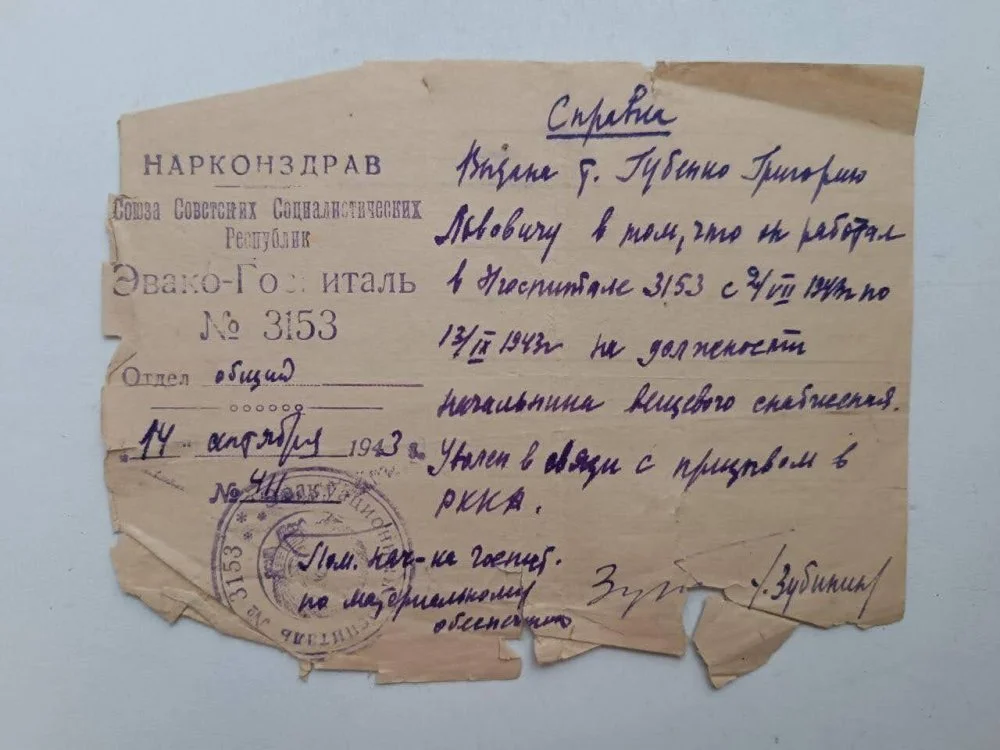 НАРКОМЗДРАВ
Союза Советских Социалистических
Республик
Эвако-Госпиталь
№ 3153
Отдел общий
14 сентября 1943 г.
№
Справка
Выдана т. Губенко Григорию
Львовичу в том, что он работал
в Н госпитале 3153 с 9/VII 1943г по
13/IX 1943г на должности
начальника вещевого снабжения.
Уволен в связи с призывом в
РККА.
Пом. нач-ка госпит.
по материальному
обеспечению
/Зубинин/
ЭВАКУАЦИОННЫЙ ГОСПИТАЛЬ № 3153